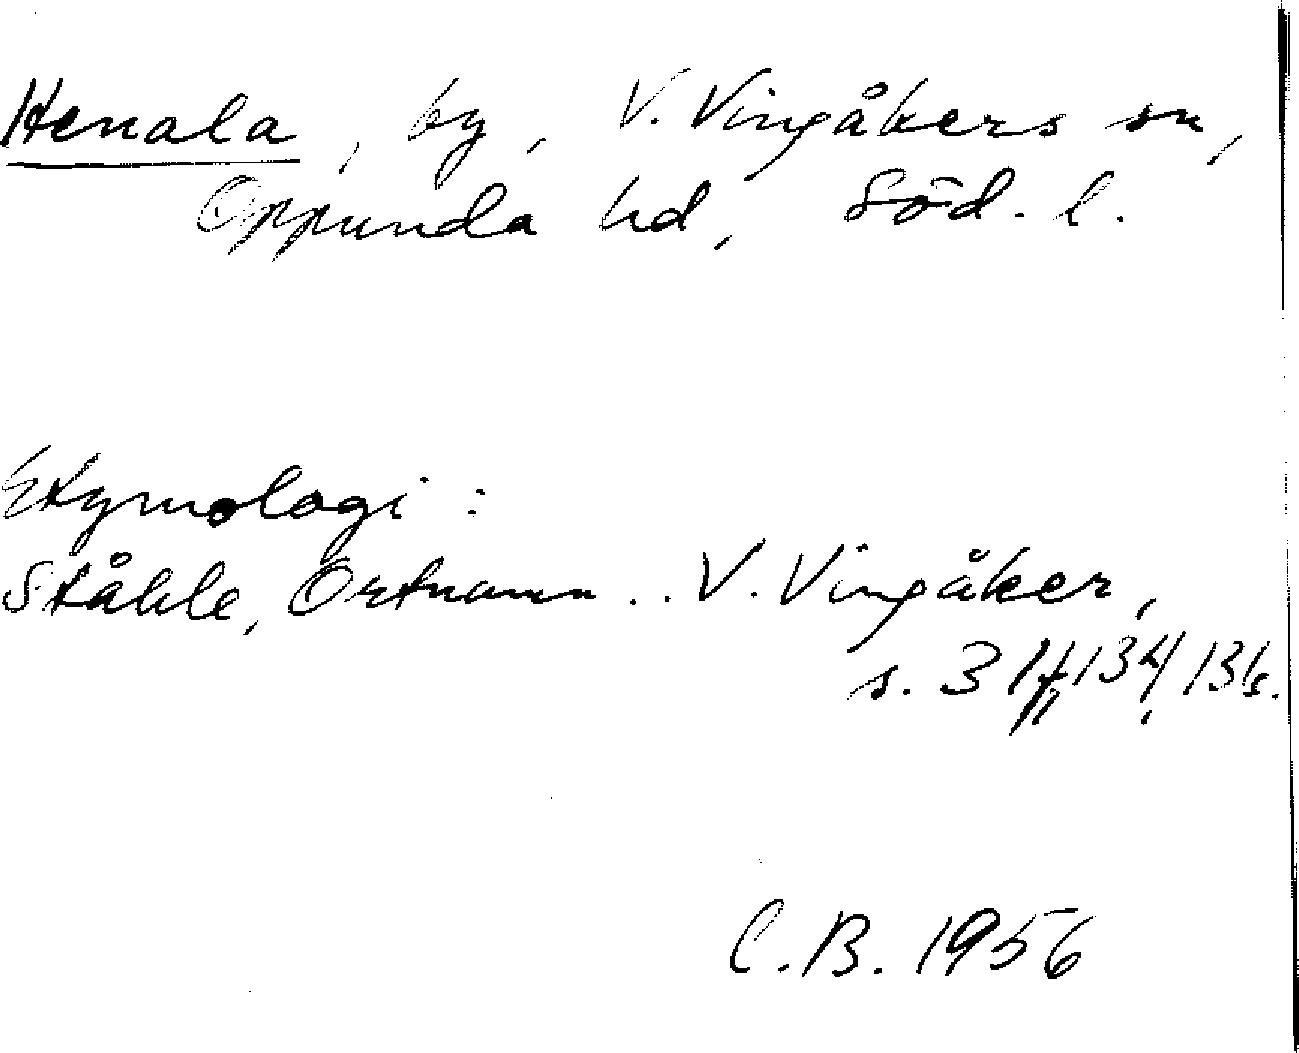 Henala, by, V. Vingåkers sn,
Oppunda hd, Söd. l.
Etymologi:
Ståhle, Ortnamn .. V. Vingåker,
s. 134, 136.
C.B. 1956